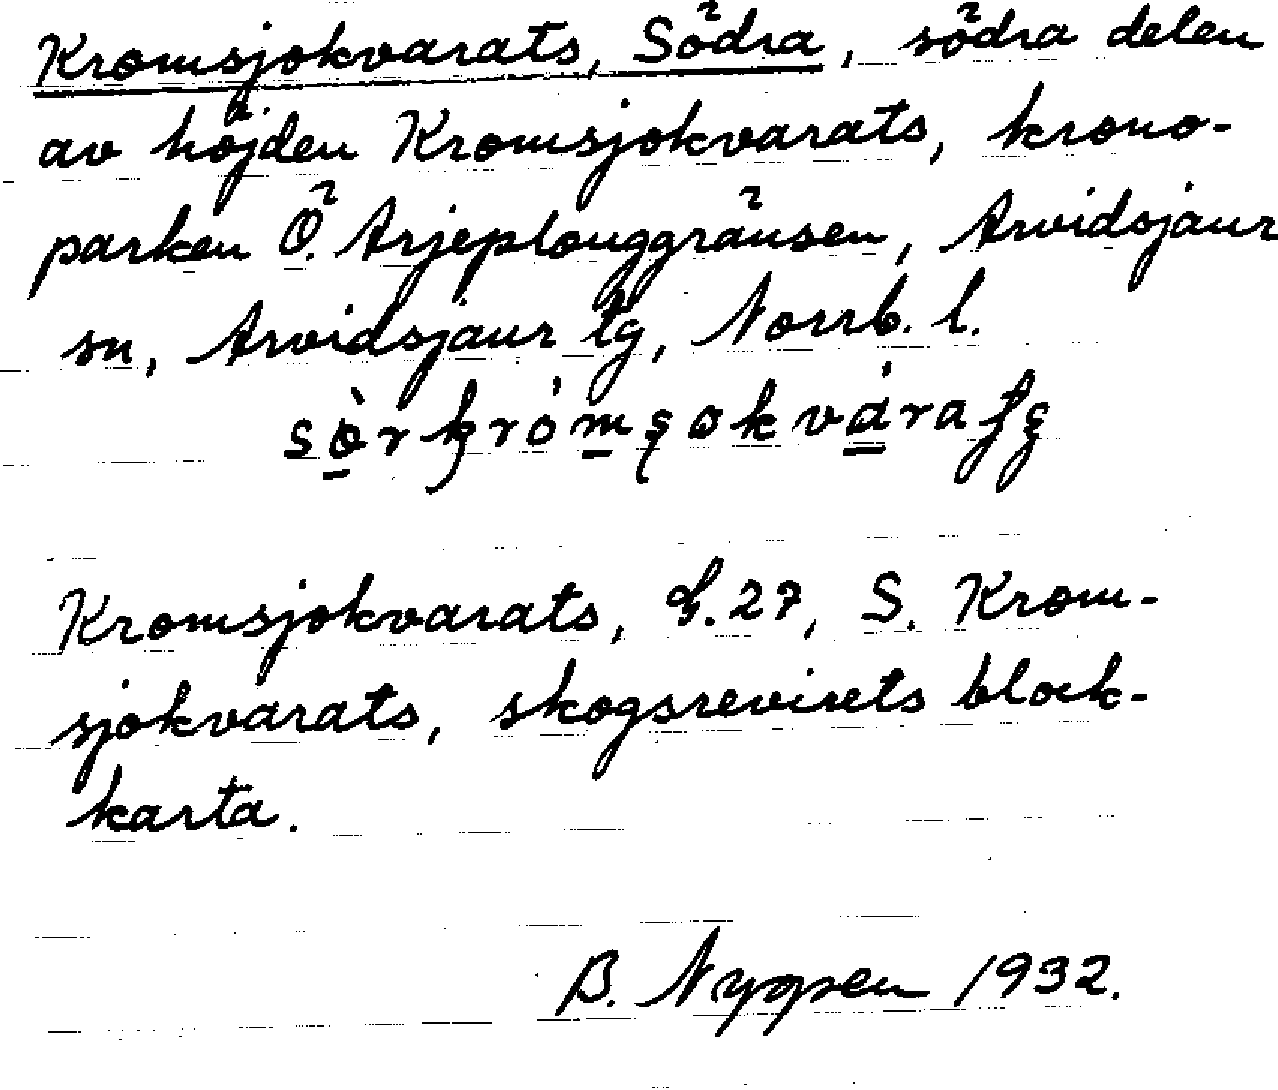 Kromsjokvarats, Södra, södra delen
av höjden Kromsjokvarats, krono-
parken Ö. Arjeplouggränsen, Arvidsjaur
sn, Arvidsjaur tg, Norrb. l.
Kromsjokvarats, G.27, S. Krom-
sjokvarats, skogsrevirets block-
karta.
B. Nyqpen 1932.